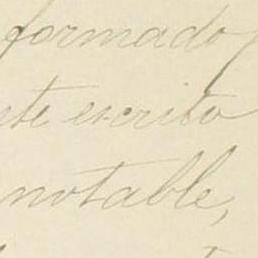 formado
ste escrito
notable,